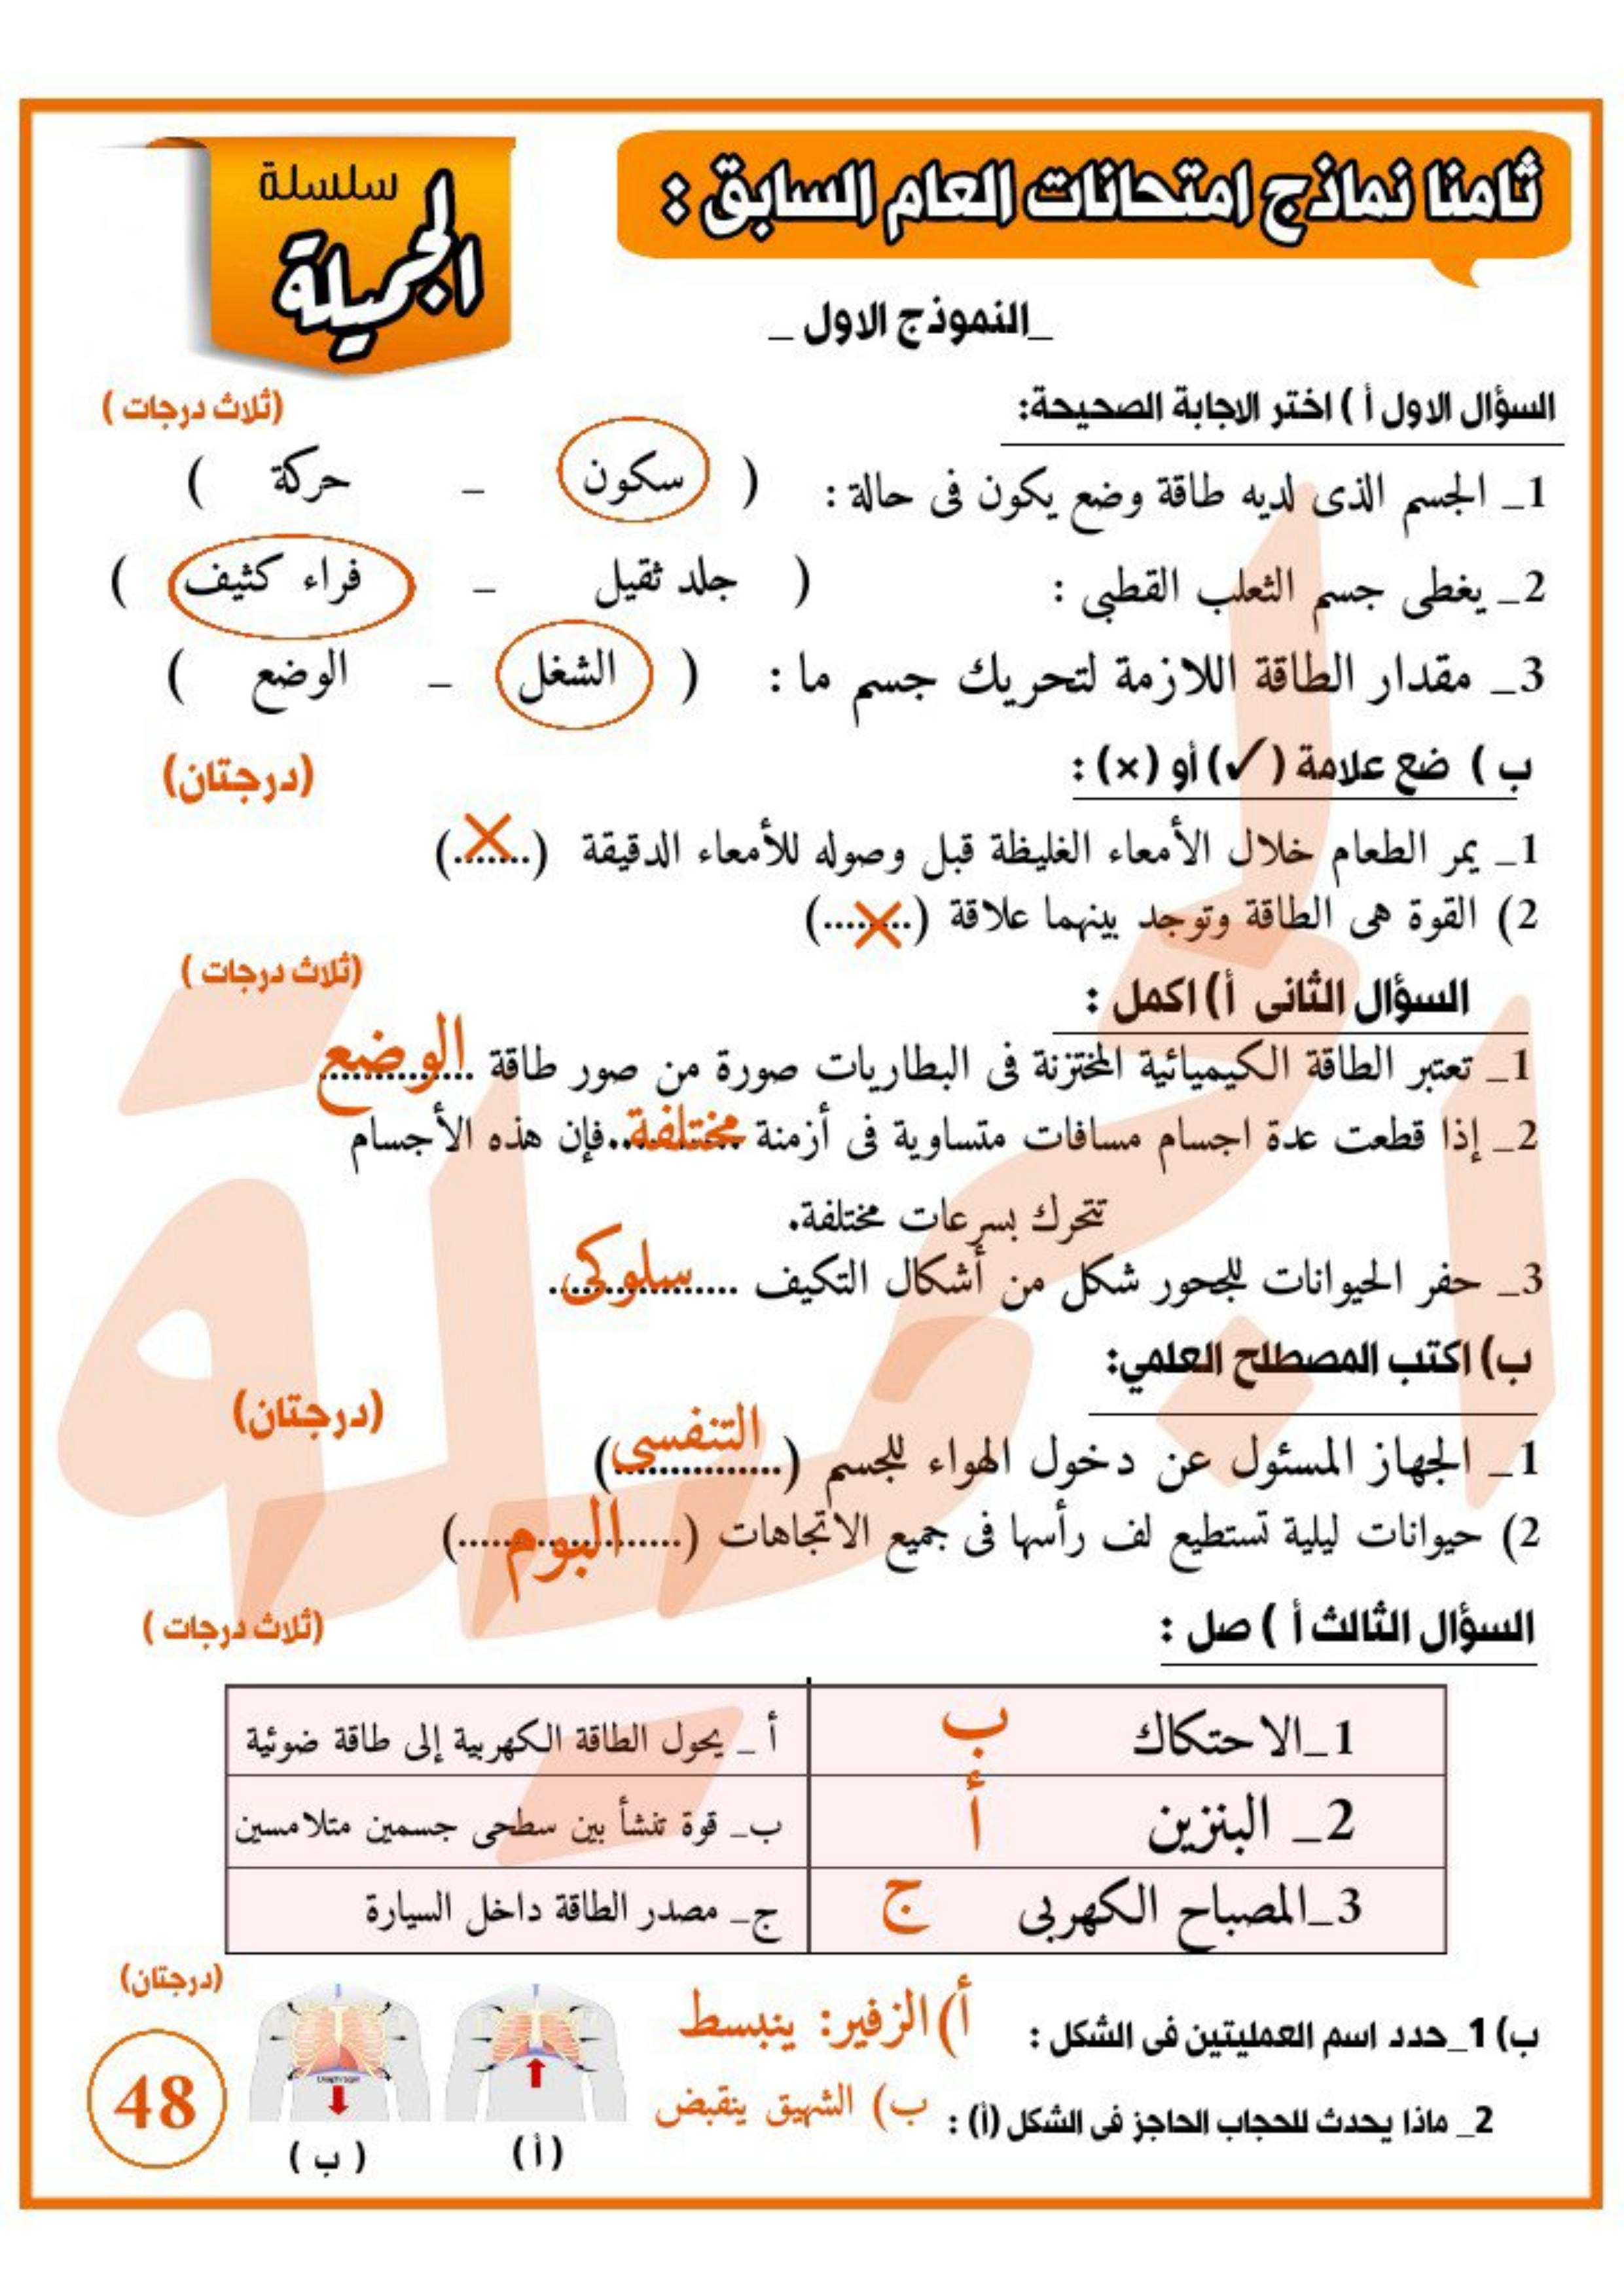 ثامنا نماذج امتحانات العام السابق :
سلسلة
الجميلة
_النموذج الاول _
السؤال الاول أ ) اختر الاجابة الصحيحة: (ثلاث درجات )
1_ الجسم الذى لديه طاقة وضع يكون فى حالة : ( سكون _ حركة )
2_ يغطى جسم الثعلب القطبى : ( جلد ثقيل _ فراء كثيف )
3_ مقدار الطاقة اللازمة لتحريك جسم ما : ( الشغل _ الوضع )
ب ) ضع علامة (✓) أو (×) : (درجتان)
1_ يمر الطعام خلال الأمعاء الغليظة قبل وصوله للأمعاء الدقيقة (...×....)
2) القوة هى الطاقة وتوجد بينهما علاقة (...×.....)
السؤال الثانى أ) اكمل : (ثلاث درجات )
1_ تعتبر الطاقة الكيميائية المختزنة فى البطاريات صورة من صور طاقة ...الوضع...
2_ إذا قطعت عدة اجسام مسافات متساوية فى أزمنة ...مختلفة...فإن هذه الأجسام
تتحرك بسرعات مختلفة.
3_ حفر الحيوانات للجحور شكل من أشكال التكيف ...سلوكى...
ب) اكتب المصطلح العلمي: (درجتان)
1_ الجهاز المسئول عن دخول الهواء للجسم (...التنفسى...)
2) حيوانات ليلية تستطيع لف رأسها فى جميع الاتجاهات (...البوم...)
السؤال الثالث أ ) صل : (ثلاث درجات )
1_الاحتكاك ب أ _ يحول الطاقة الكهربية إلى طاقة ضوئية
2_ البنزين أ ب_ قوة تنشأ بين سطحى جسمين متلامسين
3_المصباح الكهربى ج ج_ مصدر الطاقة داخل السيارة
(درجتان)
ب) 1_حدد اسم العمليتين فى الشكل : أ) الزفير: ينبسط
2_ ماذا يحدث للحجاب الحاجز فى الشكل (أ) : ب) الشهيق ينقبض
(أ) ( ب )
48
الجميلة